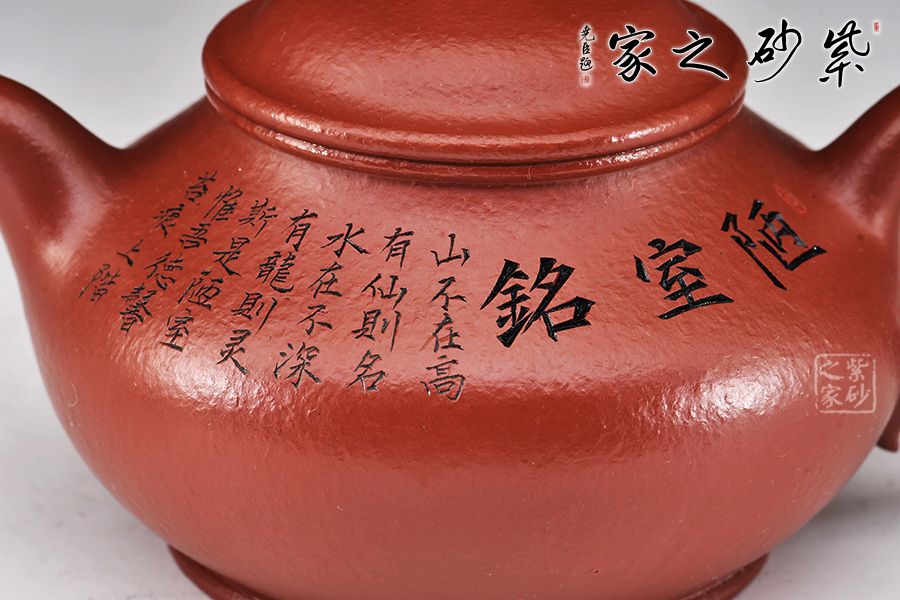 紫砂之家
堯臣題
陋室銘
山不在高
有仙則名
水在不深
有龍則灵
斯是陋室
惟吾德馨
苔痕上階
紫砂
之家